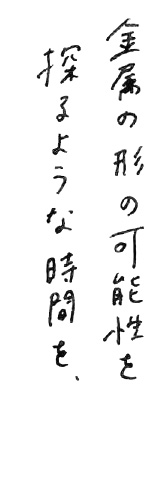 金属の形の可能性を
探るような時間を、